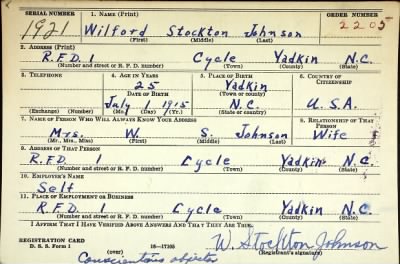 SERIAL NUMBER 1. NAME (Print) ORDER NUMBER
1921 Wilford Stockton Johnson 2205
(First) (Middle) (Last)
2. ADDRESS (Print)
R.F.D. 1 Cycle Yadkin N.C.
(Number and street or R. F. D. number) (Town) (County) (State)
3. TELEPHONE 4. AGE IN YEARS 5. PLACE OF BIRTH 6. COUNTRY OF CITIZENSHIP
25 Yadkin
DATE OF BIRTH (Town or county)
July 1 1915 N.C. U.S.A.
(Exchange) (Number) (Mo.) (Day) (Yr.) (State or country)
7. NAME OF PERSON WHO WILL ALWAYS KNOW YOUR ADDRESS 8. RELATIONSHIP OF THAT PERSON
Mrs. W. S. Johnson Wife
(Mr., Mrs., Miss) (First) (Middle) (Last)
9. ADDRESS OF THAT PERSON
R.F.D. 1 Cycle Yadkin N.C.
(Number and street or R. F. D. number) (Town) (County) (State)
10. EMPLOYER'S NAME
Self
11. PLACE OF EMPLOYMENT OR BUSINESS
R.F.D. 1 Cycle Yadkin N.C.
(Number and street or R. F. D. number) (Town) (County) (State)
I AFFIRM THAT I HAVE VERIFIED ABOVE ANSWERS AND THAT THEY ARE TRUE.
REGISTRATION CARD
D. S. S. Form 1 (over) 16—17105 W. Stockton Johnson
(Registrant's signature)
Conscientious objector